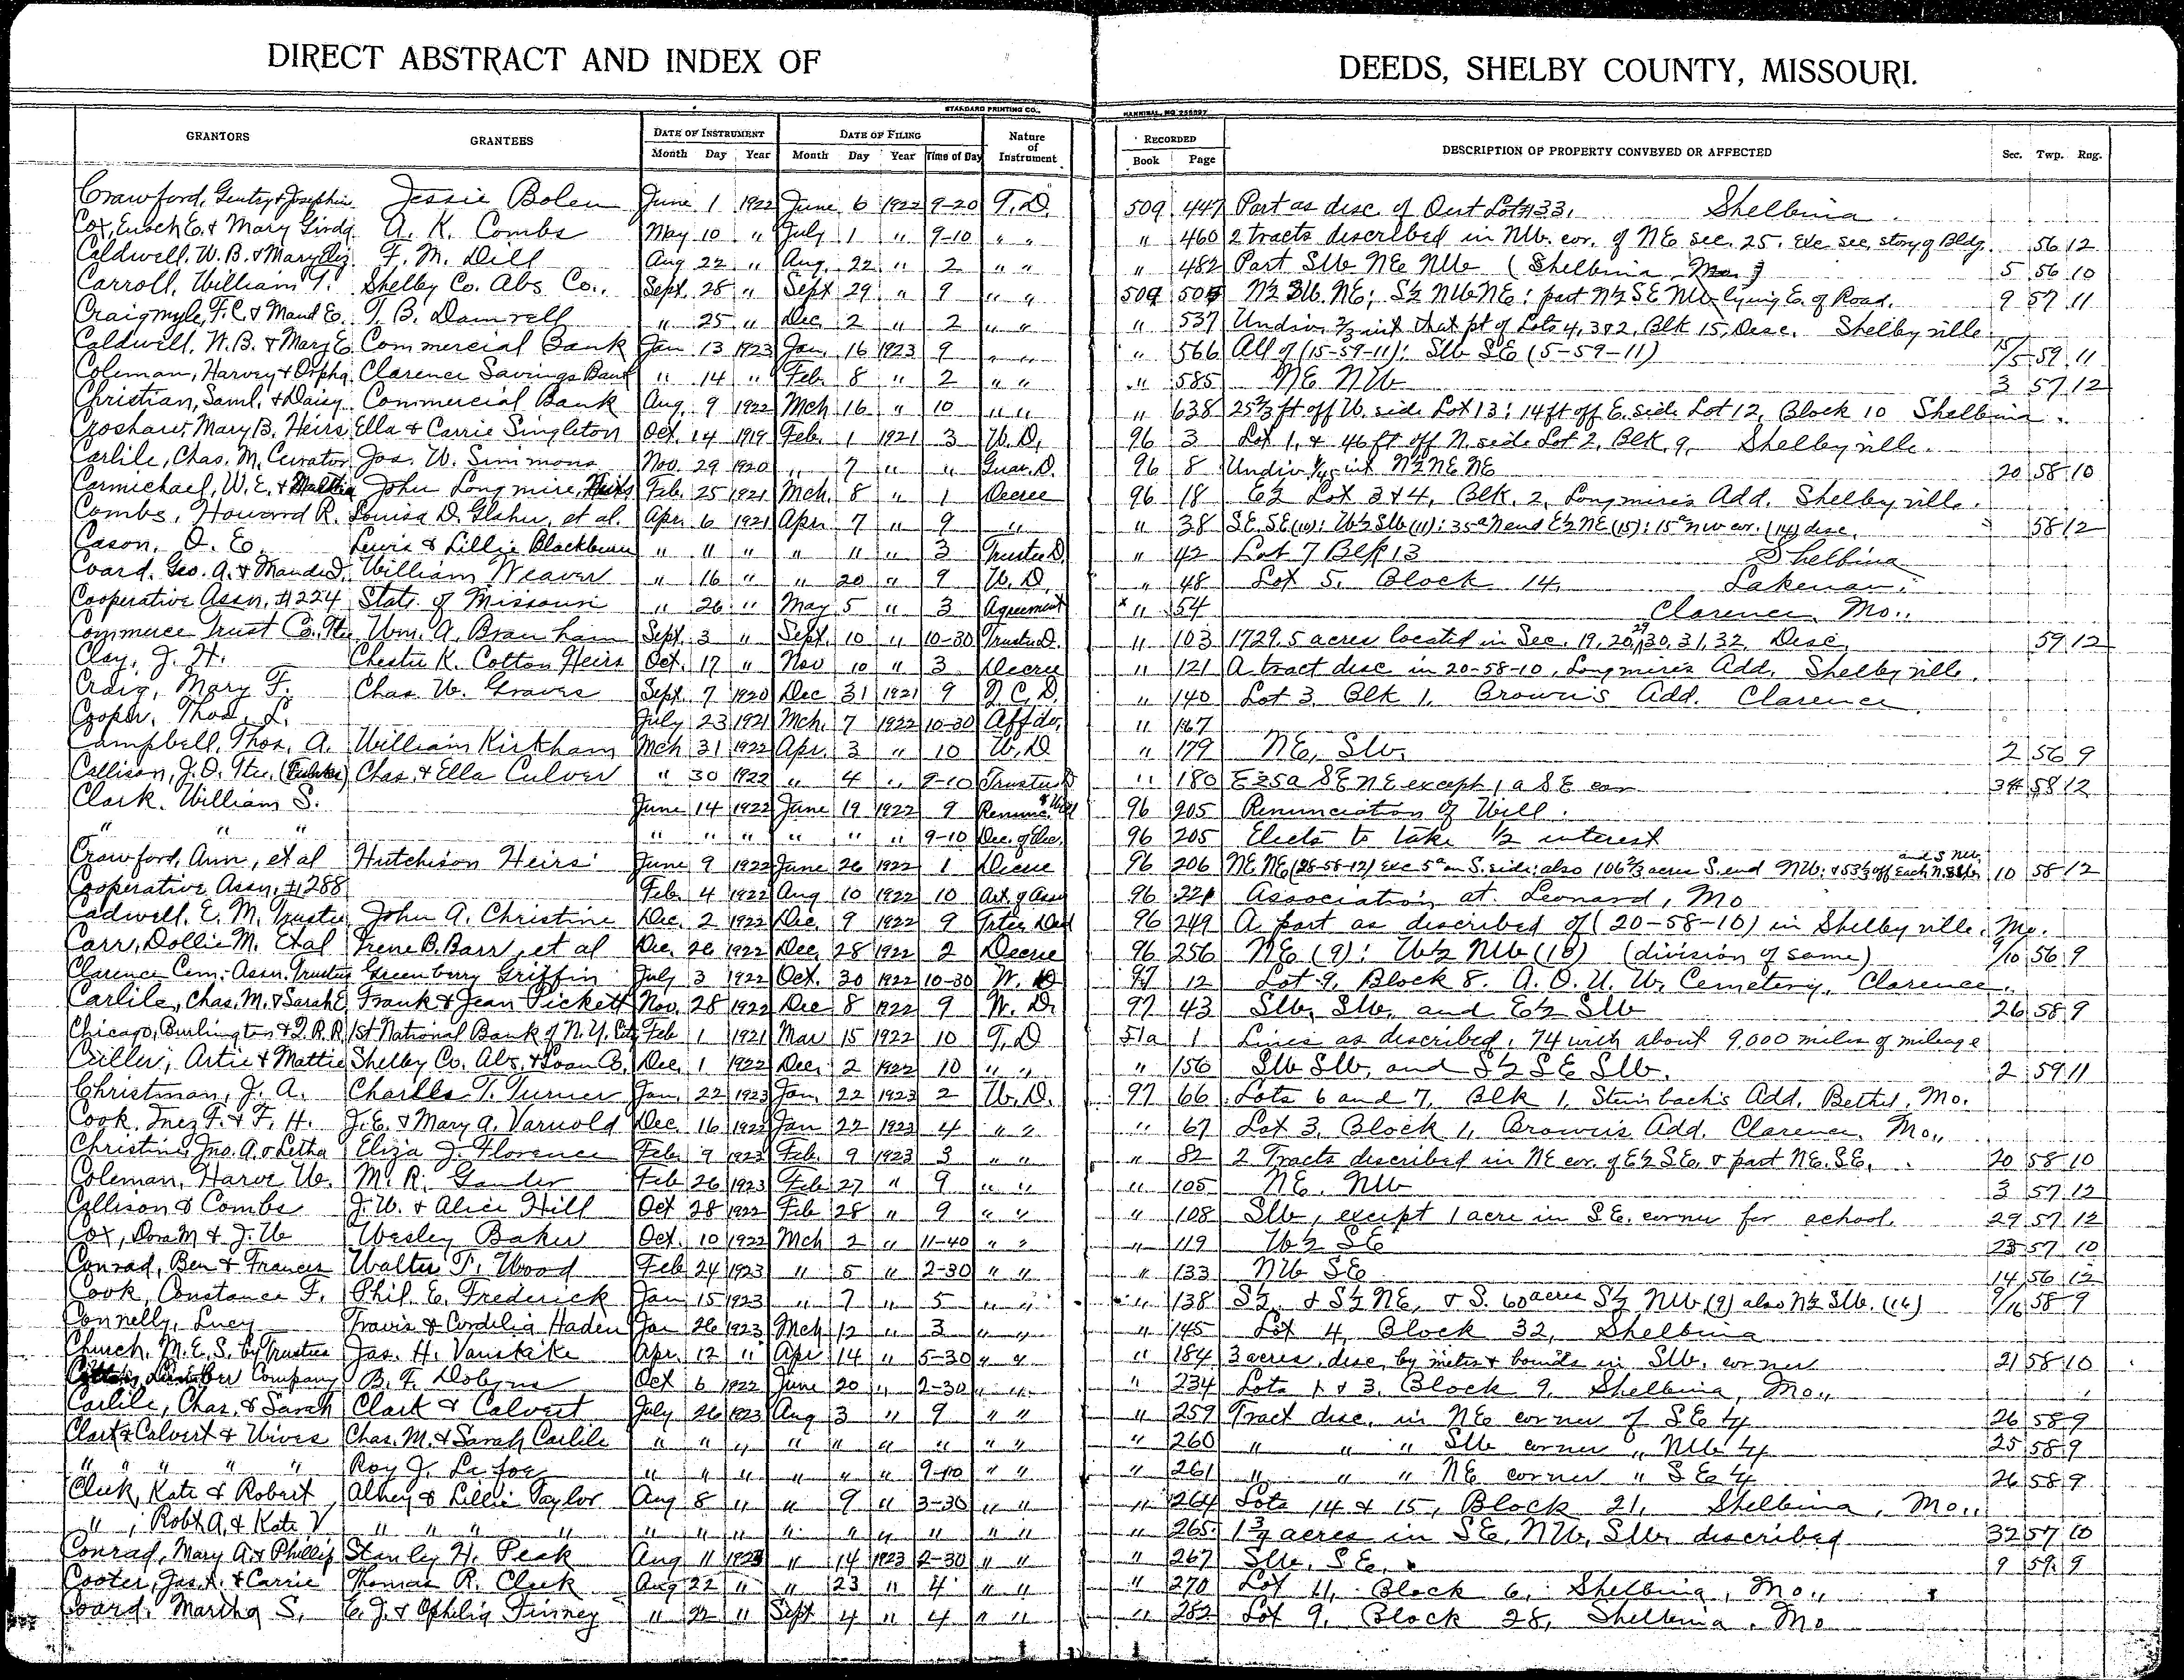 DIRECT ABSTRACT AND INDEX OF DEEDS, SHELBY COUNTY, MISSOURI.
STANDARD PRINTING CO., HANNIBAL, MO
GRANTORS GRANTEES DATE OF INSTRUMENT DATE OF FILING Nature of Instrument RECORDED DESCRIPTION OF PROPERTY CONVEYED OR AFFECTED Sec. Twp. Rng.
Month Day Year Month Day Year Time of Day Book Page
Crawford, Gentry & Josephine Jessie Bolen June 1 1922 June 6 1922 9-20 T.D. 509 447 Part as disc of Out Lot 133, Shelbina.
Cox, Enoch E. & Mary Gindg A. K. Combs May 10 " July 1 " 9-10 " " " 460 2 tracts described in NW. cor. of NE sec. 25. Exc sec. story of Bldg. 56 12
Caldwell, W. B. & Mary Eliz. F. M. Dill Aug 22 " Aug. 22 " 2 " " " 482 Part SW NE NW (Shelbina Mo.) 5 56 10
Carroll, William T. Shelby Co. Abs Co., Sept. 28 " Sept 29 " 9 " " 509 505 N½ SW. NE; S½ NW NE; part N½ SE NW lying E. of Road. 9 57 11
Craigmyle, F.C. & Maud E. T. B. Damrell " 25 " Dec 2 " 2 " " " 537 Undiv. ⅔ int that pt of Lots 4, 3 & 2, Blk 15, Desc. Shelbyville
Caldwell, W.B. & Mary E. Commercial Bank Jan 13 1923 Jan. 16 1923 9 " " " 566 All of (15-59-11): SW SE (5-59-11) 15/5 59 11
Coleman, Harvey & Orpha Clarence Savings Bank " 14 " Feb. 8 " 2 " " " 585 NE NW 3 57 12
Christian, Saml. & Daisy Commercial Bank Aug. 9 1922 Mch 16 " 10 " " " 638 25⅔ ft off W. side Lot 13: 14 ft off E. side Lot 12, Block 10 Shelbina.
Croshaw, Mary B. Heirs Ella & Carrie Singleton Oct. 14 1919 Feb. 1 1921 3 W. D. 96 3 Lot 1, & 46 ft off N. side Lot 2, Blk. 9, Shelbyville.
Carlile, Chas. M. Curator Jas. W. Simmons Nov. 29 1920 " 7 " " Guar. D. 96 8 Undiv. int N½ NE NE 20 58 10
Carmichael, W. E. & Martha John Longmire, Heirs Feb. 25 1921 Mch. 8 " 1 Decree 96 18 E½ Lot 3 & 4, Blk. 2, Longmire's Add. Shelbyville.
Combs, Howard R. Louisa D. Glahn, et al. Apr. 6 1921 Apr. 7 " 9 " " 38 SE. SE (10): W½ SW (11): 35a N end E½ NE (15): 15a nw cor. (14) disc. 58 12
Cason, O. E. Lewis & Lillie Blackburn " " " " 11 " 3 Trustee D. " 42 Lot 7 Blk 13 Shelbina
Coard, Geo. A. & Maude D. William Weaver " 16 " " 20 " 9 W. D. " 48 Lot 5, Block 14, Lakenan.
Cooperative Assn. #224 State of Missouri " 26 " May 5 " 3 Agreement " 54 Clarence, Mo.,
Commerce Trust Co. Tte Wm. A. Branham Sept. 3 " Sept. 10 " 10-30 Trustee D. " 103 1729.5 acres located in Sec. 19, 20, 29, 30, 31, 32, Desc. 59 12
Clay, J. H. Chester K. Cotton Heirs Oct. 17 " Nov 10 " 3 Decree " 121 A tract disc in 20-58-10, Longmire's Add. Shelbyville.
Craig, Mary F. Chas. W. Graves Sept. 7 1920 Dec 31 1921 9 Q. C. D. " 140 Lot 3, Blk 1, Brown's Add. Clarence.
Cooper, Thos. L. July 23 1921 Mch. 7 1922 10-30 Affdv. " 167
Campbell, Thos. A. William Kirkham Mch 31 1922 Apr. 3 " 10 W. D " 179 NE, SW. 2 56 9
Collison, J. O. Tte. Chas. & Ella Culver " 30 1922 " 4 " 9-10 Trustee D " 180 E 25a SE NE except 1 a SE cor 34 58 12
Clark, William S. June 14 1922 June 19 1922 9 Renunc. of Will 96 205 Renunciation of Will.
" " " " " " " " " 9-10 Dec. of Elec. 96 205 Elects to take ½ interest
Crawford, Ann, et al Hutchison Heirs June 9 1922 June 26 1922 1 Decree 96 206 NE, NE (28-58-12) exc 5a on S. side: also 106⅔ acres S. end NW: & 53⅓ off each N. and S NW. 10 58 12
Cooperative Assn. #288 Feb. 4 1922 Aug 10 1922 10 Art. of Assn 96 221 Association at Leonard, Mo
Cadwell, E. M. Trustee John A. Christine Dec. 2 1922 Dec. 9 1922 9 Tstee Deed 96 249 A part as described of (20-58-10) in Shelbyville, Mo.
Carr, Dollie M. Et al Irene B. Barr, et al Dec. 26 1922 Dec. 28 1922 2 Decree 96 256 NE (9): W½ NW (10) (division of same) 9/10 56 9
Clarence Cem. Assn. Trustees Greenberry Griffin July 3 1922 Oct. 30 1922 10-30 W. D 97 12 Lot 9, Block 8. A. O. U. W. Cemetery, Clarence.
Carlile, Chas. M. & Sarah E. Frank & Jean Pickett Nov. 28 1922 Dec 8 1922 9 W. D. 97 43 SW, SW, and E½ SW 26 58 9
Chicago, Burlington & Q. R.R. 1st National Bank of N.Y. City Feb 1 1921 Mar 15 1922 10 T. D 51a 1 Lines as described, 74 with about 9,000 miles of mileage
Criller, Artie & Mattie Shelby Co. Abs. & Loan Co. Dec. 1 1922 Dec. 2 1922 10 " " " 156 SW SW, and S½ SE SW. 2 59 11
Christman, J. A. Charles T. Turner Jan. 22 1923 Jan. 22 1923 2 W. D. 97 66 Lots 6 and 7, Blk 1, Steinbach's Add. Bethel, Mo.
Cook, Inez F. & F. H. J. E. & Mary A. Varnold Dec. 16 1922 Jan 22 1923 4 " " " 67 Lot 3, Block 1, Brown's Add. Clarence, Mo.,
Christine, Jno. A. & Letha Eliza J. Florence Feb. 9 1923 Feb. 9 1923 3 " " " 82 2 Tracts described in NE cor. of E½ SE. & part NE. SE. 20 58 10
Coleman, Harve W. M. R. Feb 26 1923 Feb 27 " 9 " " " 105 NE. NW 3 57 12
Collison & Combs J. W. & Alice Hill Oct 28 1922 Feb 28 " 9 " " " 108 SW, except 1 acre in SE. corner for school. 29 57 12
Cox, Dora M & J. W Wesley Baker Oct. 10 1922 Mch 2 " 11-40 " " " 119 W½ SE 23 57 10
Conrad, Ben & Frances Walter T. Wood Feb 24 1923 " 5 " 2-30 " " " 133 NW SE 14 56 12
Cook, Constance F. Phil. E. Frederick Jan 15 1923 " 7 " 5 " " " 138 S½ & S½ NE, & S. 60 acres S½ NW (9) also N½ SW. (16) 9/16 58 9
Connelly, Lucy Travis & Cordelia Haden Jan 26 1923 Mch 12 " 3 " " " 145 Lot 4, Block 32, Shelbina
Church, M. E. S. by Trustees Jas. H. Vanskike Apr. 12 " Apr 14 " 5-30 " " " 184 3 acres, disc. by metes & bounds in SW. corner 21 58 10
Company B. F. Dobyns Oct 6 1922 June 20 " 2-30 " " " 234 Lots 1 & 3, Block 9, Shelbina, Mo.,
Carlile, Chas. & Sarah Clark & Calvert July 26 1923 Aug 3 " 9 " " " 259 Tract disc. in NE corner of SE ¼ 26 58 9
Clark & Calvert & Wives Chas. M. & Sarah Carlile " " " " " " " " " " 260 " " " SW corner " NW ¼ 25 58 9
" " " " " Roy J. La foe " " " " " " 9-10 " " " 261 " " " NE corner " SE ¼ 26 58 9
Cleek, Kate & Robert Alney & Lillie Taylor Aug 8 " " 9 " 3-30 " " " 264 Lots 14 & 15, Block 21, Shelbina, Mo.,
" , Robt A. & Kate V " " " " " " " " " " " " " " 265 1¾ acres in SE, NW, SW, described 32 57 10
Conrad, Mary A. & Phillip Stanley H. Peak Aug 11 1923 " 14 1923 2-30 " " " 267 SW. SE. 9 59 9
Cooter, Jas. A. & Carrie Thomas R. Cleek Aug 22 " " 23 " 4 " " " 270 Lot 11, Block 6, Shelbina, Mo.,
Coard, Martha S. E. J. & Ophelia Finney " 22 " Sept 4 " 4 " " " 282 Lot 9, Block 28, Shelbina, Mo